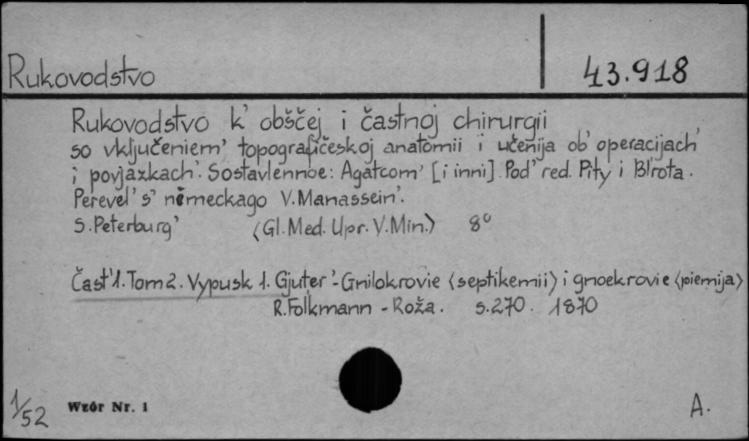 Rukovodstvo
43.918
Rukovodstvo k' obščej i častnoj chirurgii
so vključeniem' topografičeskoj anatomii i učenija ob' operacijach'
i povjazkach'. Sostavlennoe: Agatcom' [i inni]. Pod' red. Pity i Bil'rota.
Perevel' s' německago V. Manassein'.
S. Peterburg' (Gl. Med. Upr. V. Min.) 8°
Čast' 1. Tom 2. Vypusk 1. Gjuter' - Gnilokrovie (septikemii) i gnoekrovie (piemija)
R. Folkmann - Roža. s. 270. 1870
1/52
Wzór Nr. 1
A.